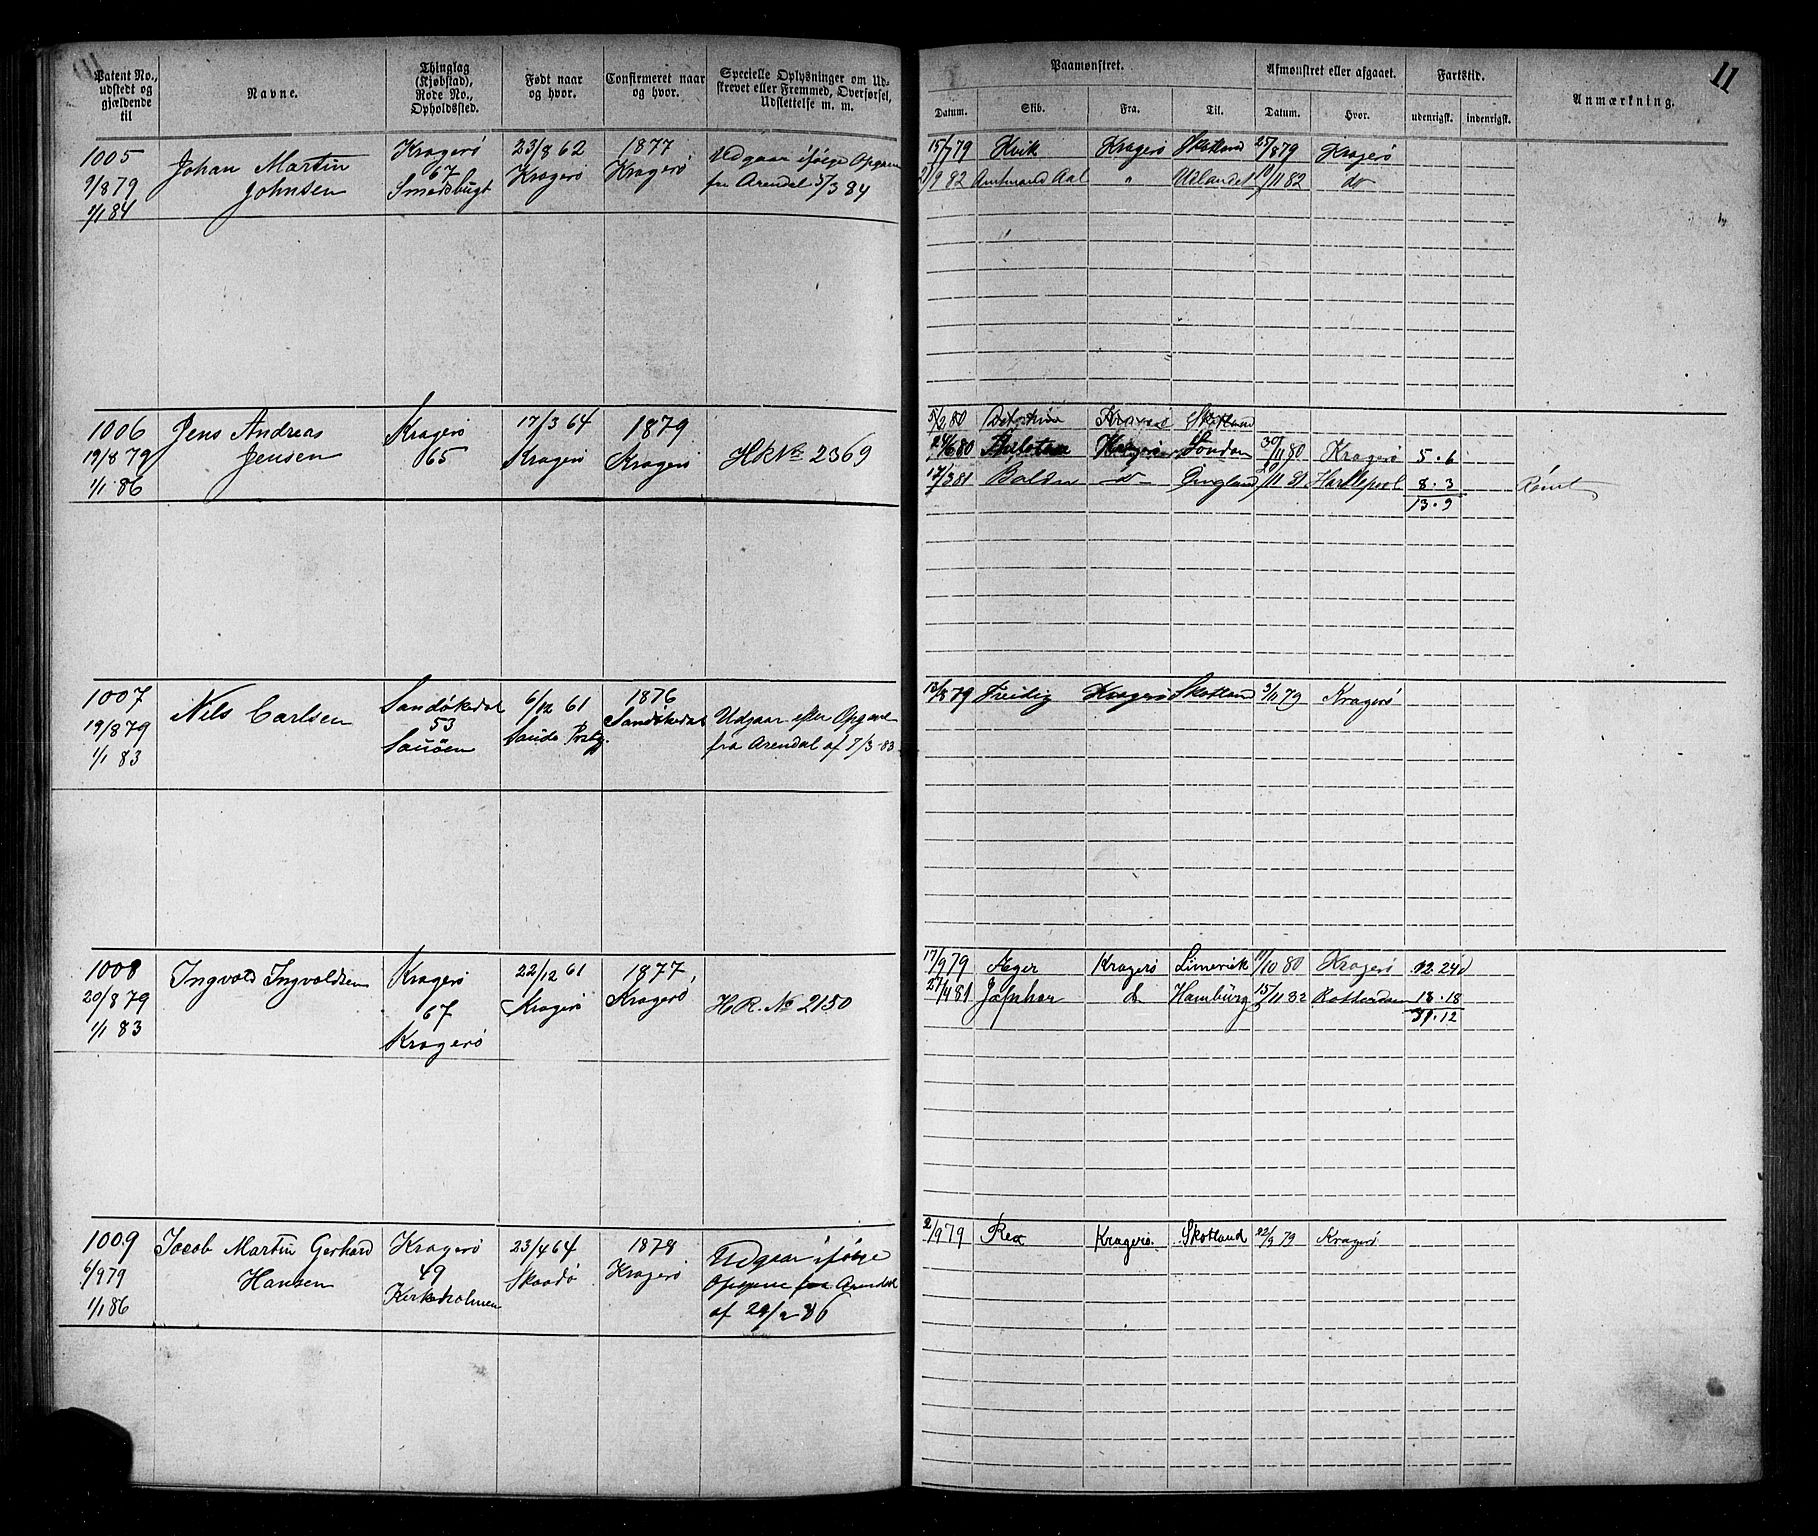 11
Patent No., udstedt og gjældende til
Navne.
Thinglag (Kjøbstad), Rode No., Opholdssted.
Født naar og hvor.
Confirmeret naar og hvor.
Specielle Oplysninger om Udskrevet eller Fremmed, Overførsel, Udslettelse m. m.
Paamønstret.
Afmønstret eller afgaaet.
Fartstid.
Anmærkning.
Datum. Skib. Fra. Til. Datum. Hvor. udenrigsk. indenrigsk.
1005
9/8 79
1/1 84
Johan Martin
Johnsen
Kragerö
67
Smedsbugt
23/8 62
Kragerö
1877
Kragerö
Udgaar ifölge Opgave
fra Arendal 5/3 84
15/7 79 Kvik Kragerö Skotland 25/8 79 Kragerö
2/9 82 Amtmand Aal " Udlandet 11/11 82 do
1006
19/8 79
1/1 86
Jens Andreas
Jensen
Kragerö
65
17/3 64
Kragerö
1879
Kragerö
HR No 2369
5/2 80 Skotland
24/6 80 London 30/11 80 Kragerö 5.6
17/3 81 Baldur do England 20/11 81 Hartlepool 8.3
13.9
Römt
1007
19/8 79
1/1 83
Nils Carlsen
Sandökedal
53
6/12 61
1876
Sandökedal
Udgaar efter Opgave
fra Arendal af 7/3 83
Freidig Kragerö Skotland 3/11 79 Kragerö
1008
20/8 79
1/1 83
Ingvald Ingvaldsen
Kragerö
67
Kragerö
22/12 61
Kragerö
1877
Kragerö
HR. No 2150
17/9 79 Æger Kragerö Limerick 11/10 80 Kragerö 12.24
27/4 81 Hamburg 15/11 82 Rotterdam 18.18
31.12
1009
6/9 79
1/1 86
Jacob Martin Gerhard
Hansen
Kragerö
49
Kirkeholmen
23/4 64
Skaadö
1878
Kragerö
Udgaar ifölge
Opgave fra Arendal
af 29/2 86
2/9 79 Rex Kragerö Skotland 22/9 79 Kragerö